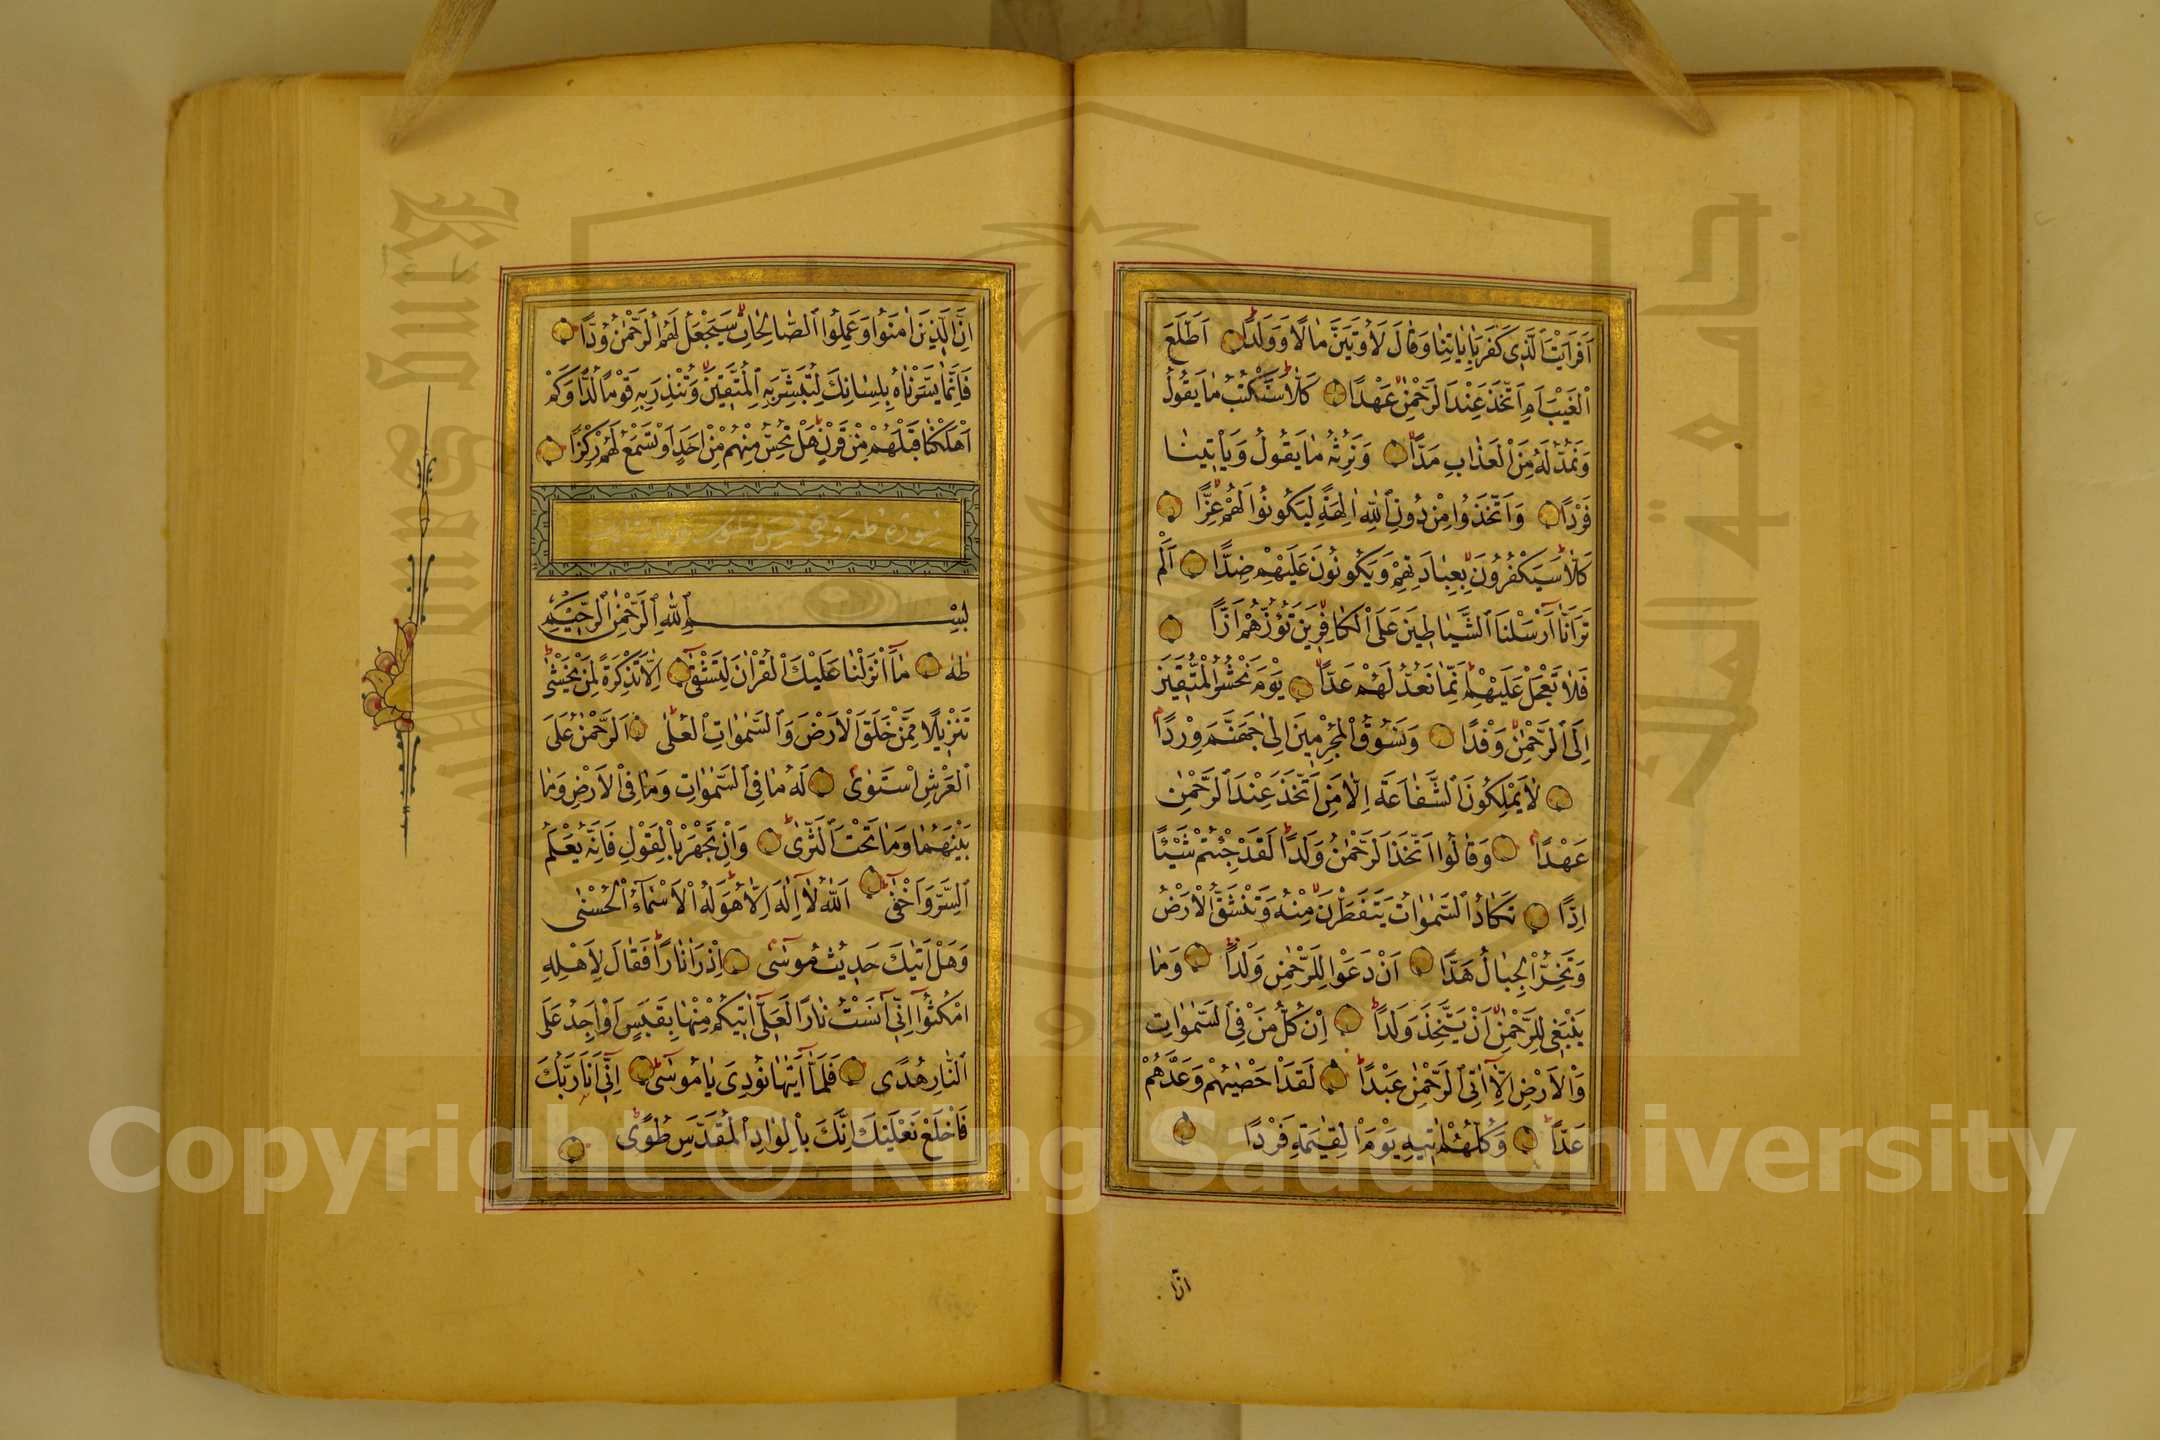 اَفَرَاَيْتَ الَّذِى كَفَرَ بِاٰيَاتِنَا وَقَالَ لَاُوتَيَنَّ مَالًا وَوَلَدًا اَطَّلَعَ
الْغَيْبَ اَمِ اتَّخَذَ عِنْدَ الرَّحْمٰنِ عَهْدًا كَلَّا سَنَكْتُبُ مَا يَقُولُ
وَنَمُدُّ لَهُ مِنَ الْعَذَابِ مَدًّا وَنَرِثُهُ مَا يَقُولُ وَيَاْتِينَا
فَرْدًا وَاتَّخَذُوا مِنْ دُونِ اللّٰهِ اٰلِهَةً لِيَكُونُوا لَهُمْ عِزًّا
كَلَّا سَيَكْفُرُونَ بِعِبَادَتِهِمْ وَيَكُونُونَ عَلَيْهِمْ ضِدًّا اَلَمْ
تَرَ اَنَّا اَرْسَلْنَا الشَّيَاطِينَ عَلَى الْكَافِرِينَ تَؤُزُّهُمْ اَزًّا
فَلَا تَعْجَلْ عَلَيْهِمْ اِنَّمَا نَعُدُّ لَهُمْ عَدًّا يَوْمَ نَحْشُرُ الْمُتَّقِينَ
اِلَى الرَّحْمٰنِ وَفْدًا وَنَسُوقُ الْمُجْرِمِينَ اِلٰى جَهَنَّمَ وِرْدًا
لَا يَمْلِكُونَ الشَّفَاعَةَ اِلَّا مَنِ اتَّخَذَ عِنْدَ الرَّحْمٰنِ
عَهْدًا وَقَالُوا اتَّخَذَ الرَّحْمٰنُ وَلَدًا لَقَدْ جِئْتُمْ شَيْئًا
اِدًّا تَكَادُ السَّمٰوَاتُ يَتَفَطَّرْنَ مِنْهُ وَتَنْشَقُّ الْاَرْضُ
وَتَخِرُّ الْجِبَالُ هَدًّا اَنْ دَعَوْا لِلرَّحْمٰنِ وَلَدًا وَمَا
يَنْبَغِى لِلرَّحْمٰنِ اَنْ يَتَّخِذَ وَلَدًا اِنْ كُلُّ مَنْ فِى السَّمٰوَاتِ
وَالْاَرْضِ اِلَّا اٰتِى الرَّحْمٰنِ عَبْدًا لَقَدْ اَحْصٰيهُمْ وَعَدَّهُمْ
عَدًّا وَكُلُّهُمْ اٰتِيهِ يَوْمَ الْقِيٰمَةِ فَرْدًا
انّ
اِنَّ الَّذِينَ اٰمَنُوا وَعَمِلُوا الصَّالِحَاتِ سَيَجْعَلُ لَهُمُ الرَّحْمٰنُ وُدًّا
فَاِنَّمَا يَسَّرْنَاهُ بِلِسَانِكَ لِتُبَشِّرَ بِهِ الْمُتَّقِينَ وَتُنْذِرَ بِهِ قَوْمًا لُدًّا وَكَمْ
اَهْلَكْنَا قَبْلَهُمْ مِنْ قَرْنٍ هَلْ تُحِسُّ مِنْهُمْ مِنْ اَحَدٍ اَوْ تَسْمَعُ لَهُمْ رِكْزًا
سورة طه
بِسْمِ اللّٰهِ الرَّحْمٰنِ الرَّحِيمِ
طٰهٰ مَا اَنْزَلْنَا عَلَيْكَ الْقُرْاٰنَ لِتَشْقٰى اِلَّا تَذْكِرَةً لِمَنْ يَخْشٰى
تَنْزِيلًا مِمَّنْ خَلَقَ الْاَرْضَ وَالسَّمٰوَاتِ الْعُلٰى اَلرَّحْمٰنُ عَلَى
الْعَرْشِ اسْتَوٰى لَهُ مَا فِى السَّمٰوَاتِ وَمَا فِى الْاَرْضِ وَمَا
بَيْنَهُمَا وَمَا تَحْتَ الثَّرٰى وَاِنْ تَجْهَرْ بِالْقَوْلِ فَاِنَّهُ يَعْلَمُ
السِّرَّ وَاَخْفٰى اَللّٰهُ لَا اِلٰهَ اِلَّا هُوَ لَهُ الْاَسْمَاءُ الْحُسْنٰى
وَهَلْ اَتٰيكَ حَدِيثُ مُوسٰى اِذْ رَاٰ نَارًا فَقَالَ لِاَهْلِهِ
امْكُثُوا اِنِّى اٰنَسْتُ نَارًا لَعَلِّى اٰتِيكُمْ مِنْهَا بِقَبَسٍ اَوْ اَجِدُ عَلَى
النَّارِ هُدًى فَلَمَّا اَتٰيهَا نُودِىَ يَا مُوسٰى اِنِّى اَنَا رَبُّكَ
فَاخْلَعْ نَعْلَيْكَ اِنَّكَ بِالْوَادِ الْمُقَدَّسِ طُوًى
King Saud
جامعة الملك
1957
Copyright © King Saud University